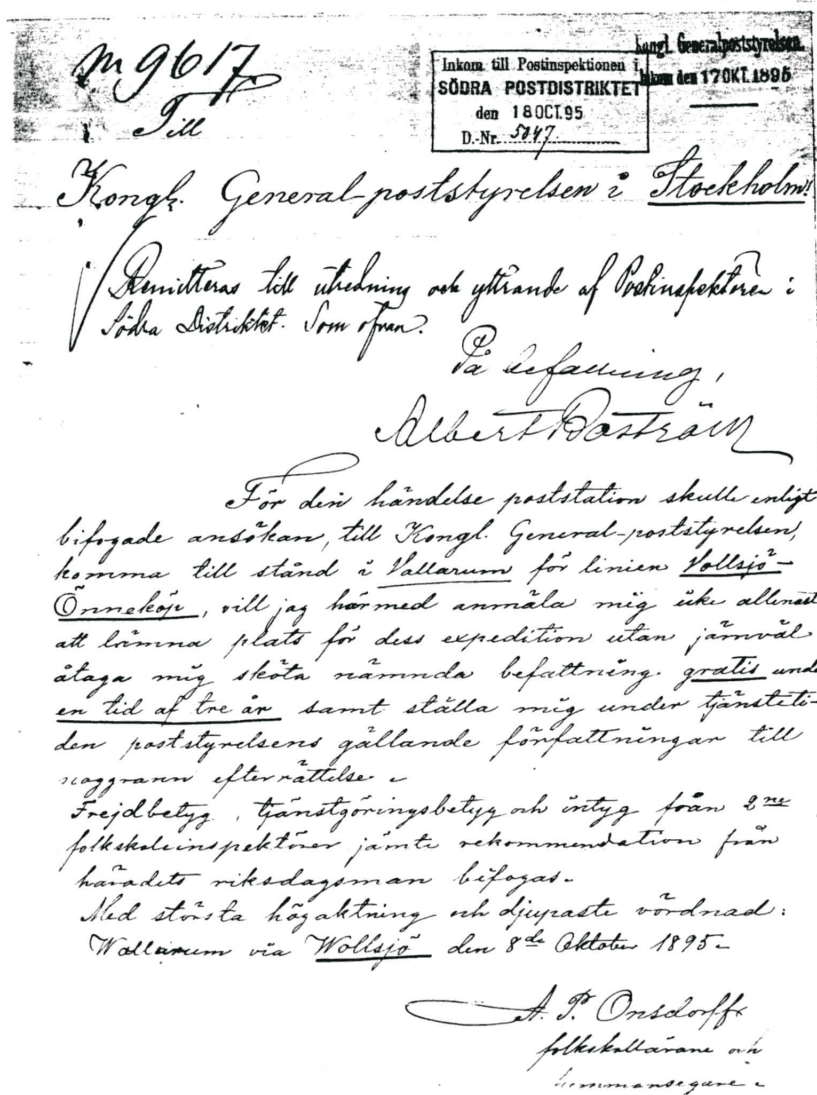 m 9617
Kongl. Generalpoststyrelsen.
Inkom den 17 OKT. 1895
Inkom till Postinspektionen i
SÖDRA POSTDISTRIKTET
den 18 OCT. 95
D.-Nr. 5047
Till
Kongl. General-poststyrelsen i Stockholm!
Remitteras till utredning och yttrande af Postinspektören i
Södra Distriktet. Som ofvan.
På befallning,
Albert Boström
För den händelse poststation skulle enligt
bifogade ansökan, till Kongl. General-poststyrelsen,
komma till stånd i Vallarum för linien Vollsjö-
Önneköp, vill jag härmed anmäla mig icke allenast
att lämna plats för dess expedition utan jämväl
åtaga mig sköta nämnda befattning gratis unde
en tid af tre år samt ställa mig under tjänsteti-
den poststyrelsens gällande författningar till
noggrann efterrättelse.
Frejdbetyg, tjänstgöringsbetyg och intyg från 2ne
folkskoleinspektörer jämte rekommendation från
häradets riksdagsman bifogas.
Med största högaktning och djupaste vördnad:
Wallarum via Wollsjö den 8de Oktober 1895.
A. P. Onsdorff
folkskollärare och
hemmansegare